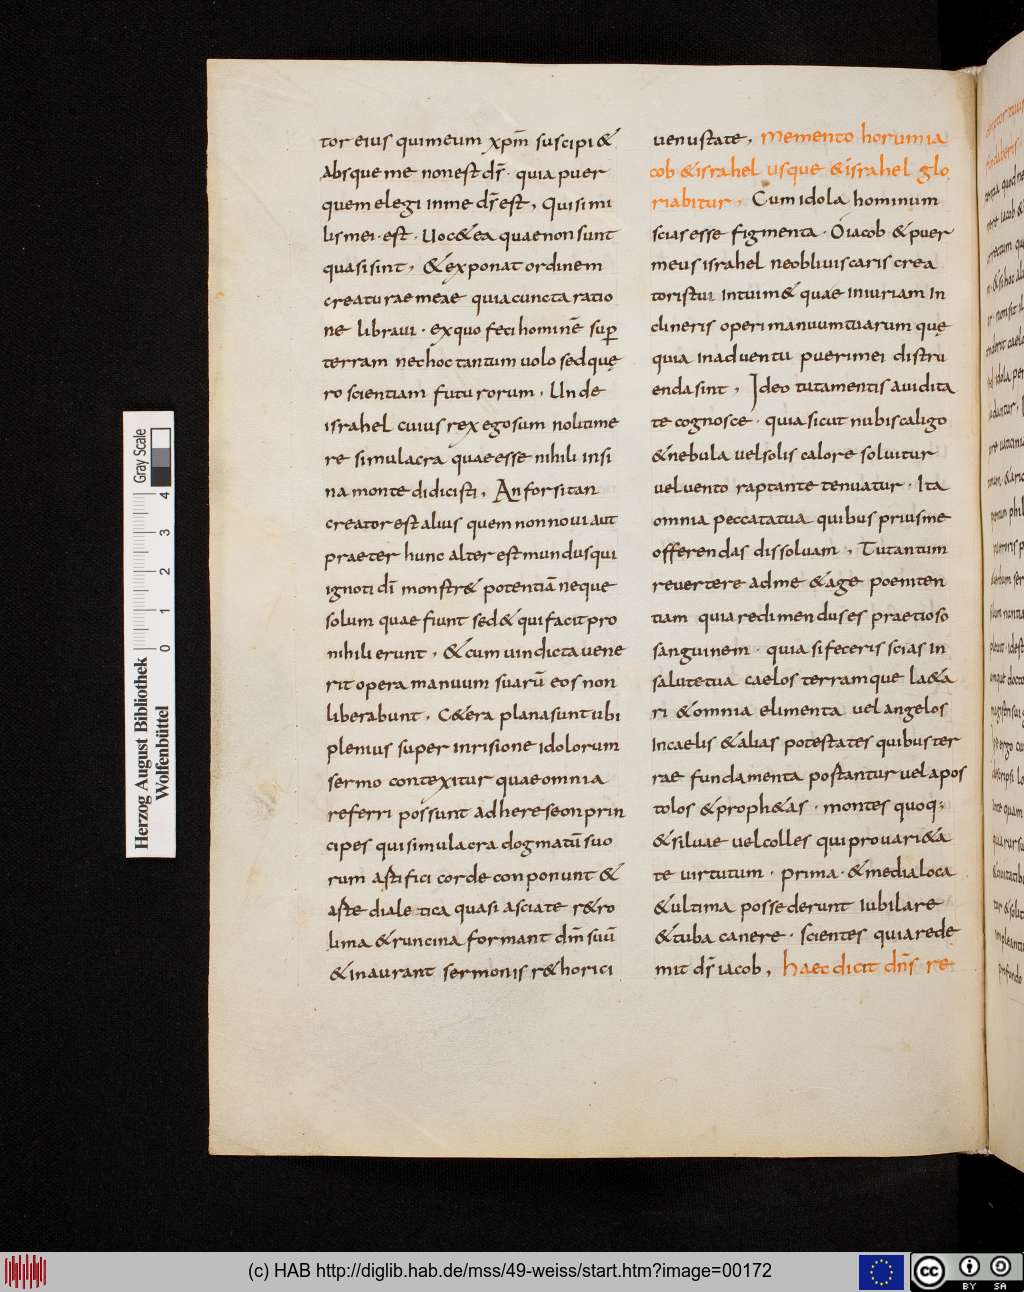 tor eius qui meum xpm̅ suscipi &
absque me non est ds̅ · quia puer
quem elegi in me ds̅ est, Qui simi
lis mei · est · Uoc& ea quae non sunt
quasi sint, & exponat ordinem
creaturae meae quia cuncta ratio
ne libraui · ex quo feci hominē sup̲
terram nec hoc tantum uolo sed quę
ro scientiam futurorum, Unde
israhel cuius rex ego sum noli time
re simulacra quae esse nihili in si
na monte didicisti, An forsitan
creator est alius quem non noui aut
praeter hunc alter est mundus qui
ignoti di̅ monstr& potentiā neque
solum quae fiunt sed & qui facit pro
nihili erunt, & cum uindicta uene
rit opera manuum suarū eos non
liberabunt, C&era plana sunt ubi
plenius super inrisione idolorum
sermo contexitur quae omnia
referri possunt ad hereseon prin
cipes qui simulacra dogmatū suo
rum astifici corde conponunt &
aste dialetica quasi asciate r&ro
lima & runcina formant dm̅ suū
& inaurant sermonis r&horici
uenustate, memento horum ia
cob & israhel usque & israhel glo
riabitur, Cum idola hominum
scias esse figmenta · O iacob & puer
meus israhel ne obliuiscaris crea
toris tui intuim& quae iniuriam in
clineris operi manuum tuarum quę
quia in aduentu pueri mei distru
enda sint, Ideo tuta mentis auidita
te cognosce · quia sicut nubis caligo
& nebula uel solis calore soluitur
uel uento raptante tenuatur · Ita
omnia peccata tua quibus prius me
offerendas dissoluam, Tu tantum
reuertere ad me & age poeniten
tiam quia redimendus es praetioso
sanguinem · quia si feceris scias in
salute tua caelos terramque la&a
ri & omnia elimenta uel angelos
in caelis & alias potestates quibus ter
rae fundamenta postantur uel apos
tolos & proph&as · montes quoq;
& siluae uel colles qui pro uari&a
te uirtutum · prima · & media loca
& ultima possederunt iubilare
& tuba canere · scientes quia rede
mit ds̅ iacob, haec dicit dn̅s re
Herzog August Bibliothek
Wolfenbüttel
0 1 2 3 4
Gray Scale
(c) HAB http://diglib.hab.de/mss/49-weiss/start.htm?image=00172
cc BY SA